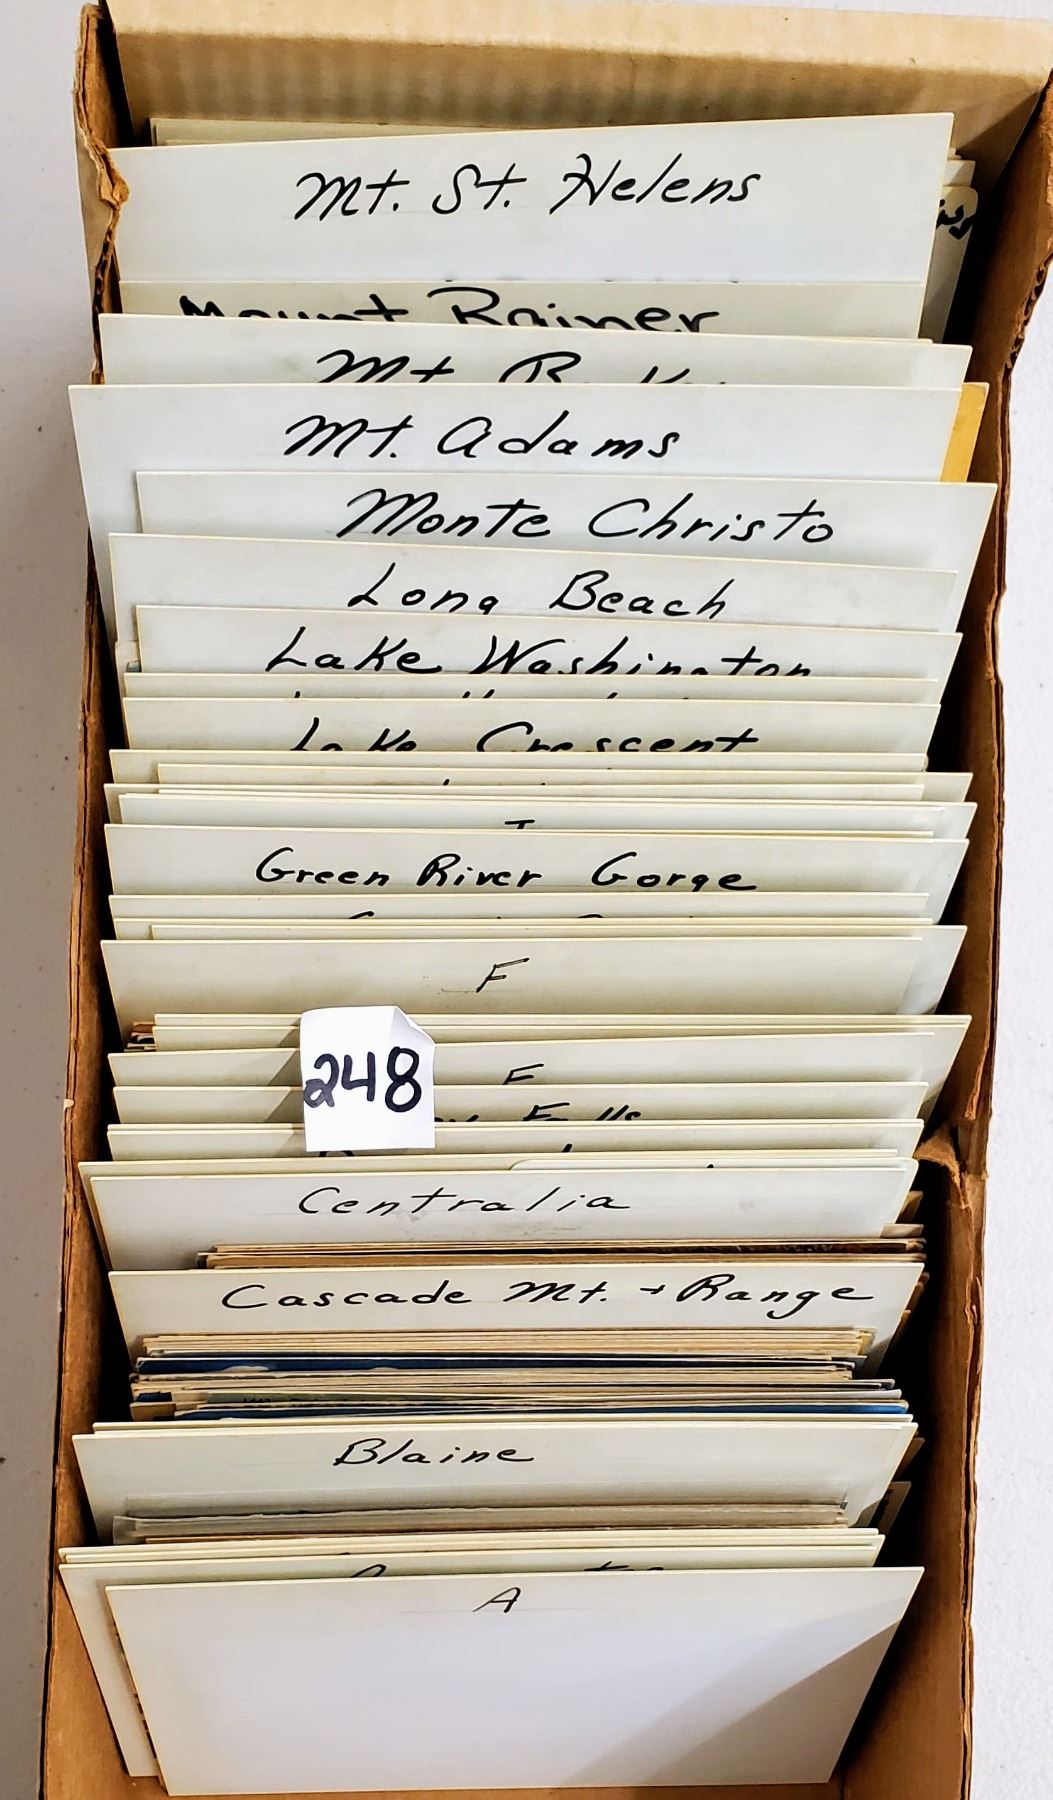 Mt. St. Helens
Mount Rainer
Mt
Mt. Adams
Monte Christo
Long Beach
Lake Washington
Lake Crescent
Green River Gorge
F
248
F
Falls
Centralia
Cascade Mt. + Range
Blaine
A